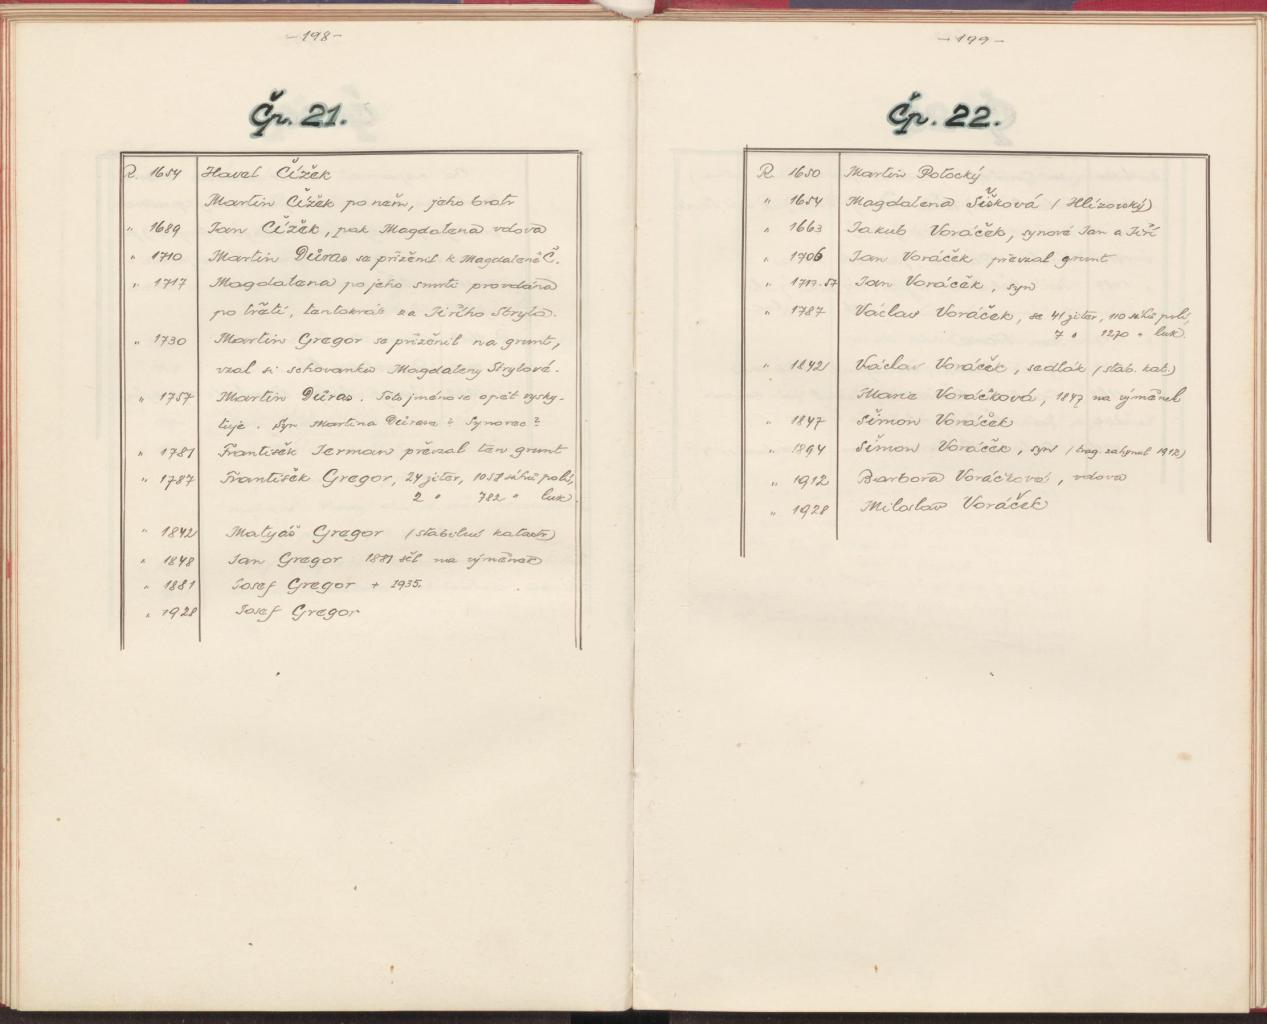 -198-
Čp. 21.
R. 1654 Havel Čížek
Martin Čížek po něm, jeho bratr
" 1689 Jan Čížek, pak Magdalena vdova
" 1710 Martin Důras se přiženil k Magdaleně Č.
" 1717 Magdalena po jeho smrti provdána
po třetí, tentokrát za Jiřího Strýla.
" 1730 Martin Gregor se přiženil na grunt,
vzal si schovanku Magdaleny Strýlové.
" 1757 Martin Důras. Toto jméno se opět vysky-
tuje. Syn Martina Důrasa? Synovec?
" 1781 František Jerman převzal ten grunt
" 1787 František Gregor, 24 jiter, 1058 sáhů polí,
2 " 782 " luk.
" 1842 Matyáš Gregor (stabilní katastr)
" 1848 Jan Gregor 1881 šel na výměnek
" 1881 Josef Gregor + 1935.
" 1928 Josef Gregor
-199-
Čp. 22.
R. 1650 Martin Potocký
" 1654 Magdalena Šišková (Hlízovský)
" 1663 Jakub Voráček, synové Jan a Jiří
" 1706 Jan Voráček převzal grunt
" 1717-57 Jan Voráček, syn
" 1787 Václav Voráček, se 41 jiter, 110 sáhů polí,
7 " 1270 " luk.
" 1842 Václav Voráček, sedlák (stab. kat.)
Marie Voráčková, 1847 na výměnek
" 1847 Šimon Voráček
" 1894 Šimon Voráček, syn (trag. zahynul 1912)
" 1912 Barbora Voráčková, vdova
" 1928 Miloslav Voráček